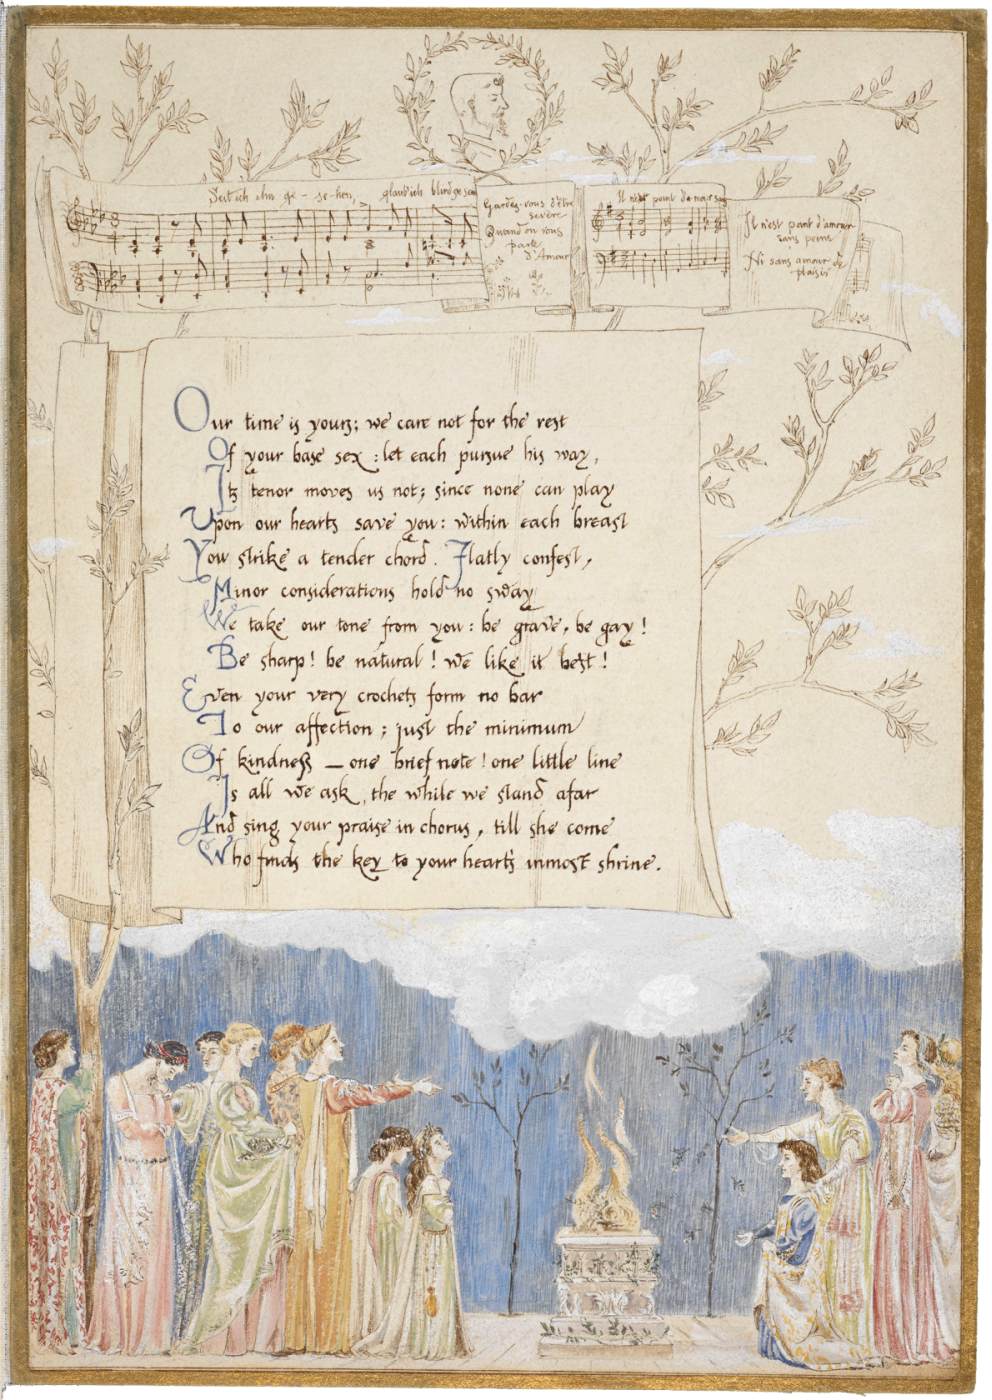 Seit ich ihn ge - se - hen, glaub' ich blind ze sein
Gardez-vous d'être
sévère
Quand on vous
parle
d'Amour
Il n'est point d'amour sans
Il n'est point d'amour
sans peine
Ni sans amour de
plaisir
Our time is yours; we care not for the rest
Of your base sex: let each pursue his way,
Its tenor moves us not; since none can play
Upon our hearts save you: within each breast
You strike a tender chord. Flatly confest,
Minor considerations hold no sway
We take our tone from you: be grave, be gay!
Be sharp! be natural! we like it best!
Even your very crochets form no bar
To our affection; just the minimum
Of kindness — one brief note! one little line
Is all we ask, the while we stand afar
And sing your praise in chorus, till she come
Who finds the key to your heart's inmost shrine.